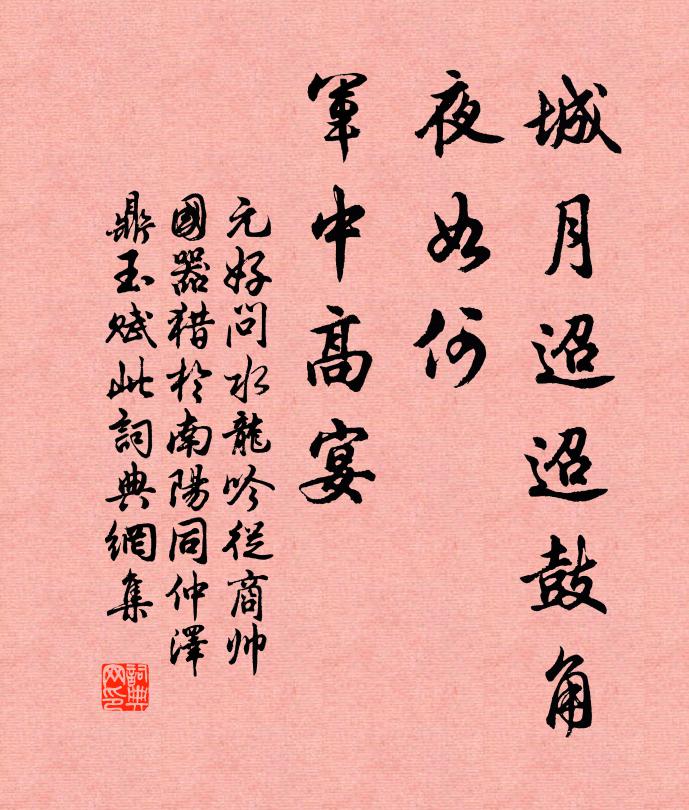 城月迢迢鼓角
夜如何
軍中高宴
元好問水龍吟從商帅
國器猎於南陽同仲澤
鼎玉赋此詞典網集
詞典
网印